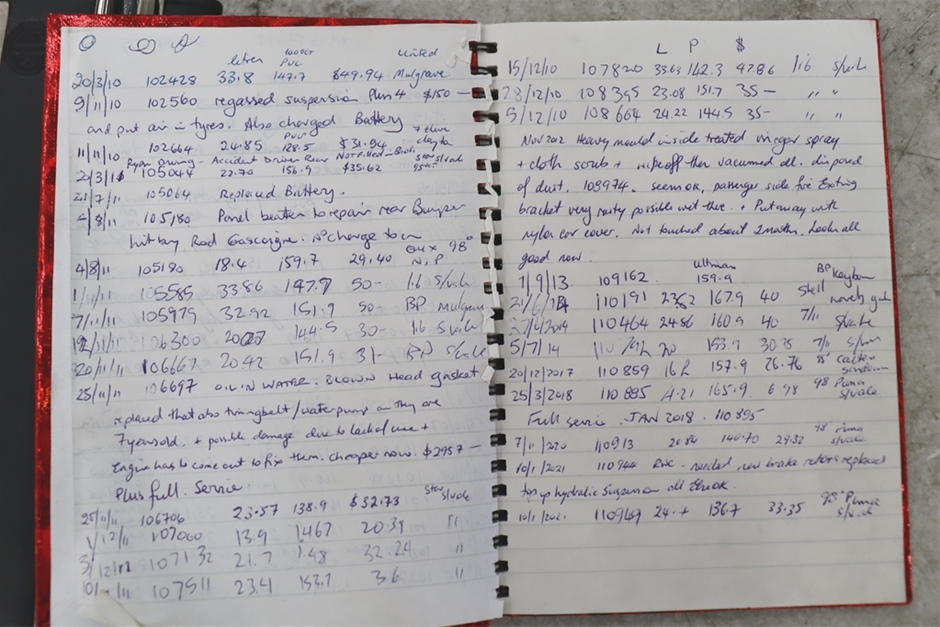 litres 100oct PULP United
20/3/10 102428 33.8 147.7 $49.94 Mulgrave
9/11/10 102560 regassed suspension Plus 4 $150 —
and put air in tyres. Also charged Battery
11/11/10 102664 24.85 128.5 $31.94 clayton
Accident Driver Rear
105044 22.70 156.9 $35.62
21/7/11 105064 Replaced Battery.
8/11 105180 Panel beater to repair rear Bumper
hit by Rod Gascoigne. No charge to
4/8/11 105190 18.4 159.7 29.40 98°
1/11/11 105585 33.86 147.7 50— Lib S/vale
7/11/11 105979 32.92 151.9 50— BP Mulgrave
106300 20.27 144.5 30— Lib S/vale
20/11/11 106667 20.42 151.9 31— S/vale
25/11/11 106697 OIL IN WATER. BLOWN Head gasket
replaced that also timing belt/water pump as they are
7 years old. + possible damage due to lack of use +
Engine has to come out to fix them. cheaper now. $2957—
Plus full. Service
25/11/11 106706 23.57 138.9 $32.73 S/vale
1/12/11 107060 13.9 146.7 20.39 "
107132 21.7 1.48 32.24 "
107511 23.4 153.7 36 "
L P $
15/12/10 107820 33.63 142.3 47.86 Lib S/vale
28/12/10 108395 23.08 151.7 35— " "
5/12/10 108664 24.22 144.5 35— " "
Nov 2012 Heavy mould inside treated vinegar spray
+ cloth scrub + wipe off then vacumed all. disposed
of dust. 108974. seems ok, passenger side fire Exting
bracket very rusty possible wet there. + Put away with
nylon car cover. Not touched about 2 months. Looks all
good now.
Ultimate BP
1/9/13 109162 159.9
110191 23.82 167.9 40 Shell
110464 24.86 160.9 40 7/11 S/vale
5/7/14 20 153.9 30.78 7/11 S/vale
20/12/2017 110859 157.9 26.76 98° Caltex
25/3/2018 110895 4.21 165.9 6.98 98 Puma S/vale
Full service JAN 2018. 110895
7/11/2020 110913 20.86 140.70 29.32 98 Puma S/vale
10/1/2021 110944 RWC. needed new brake rotors replaced
top up hydralic Suspension all Check.
10/1/2021 110969 136.7 33.35 98° Puma S/vale